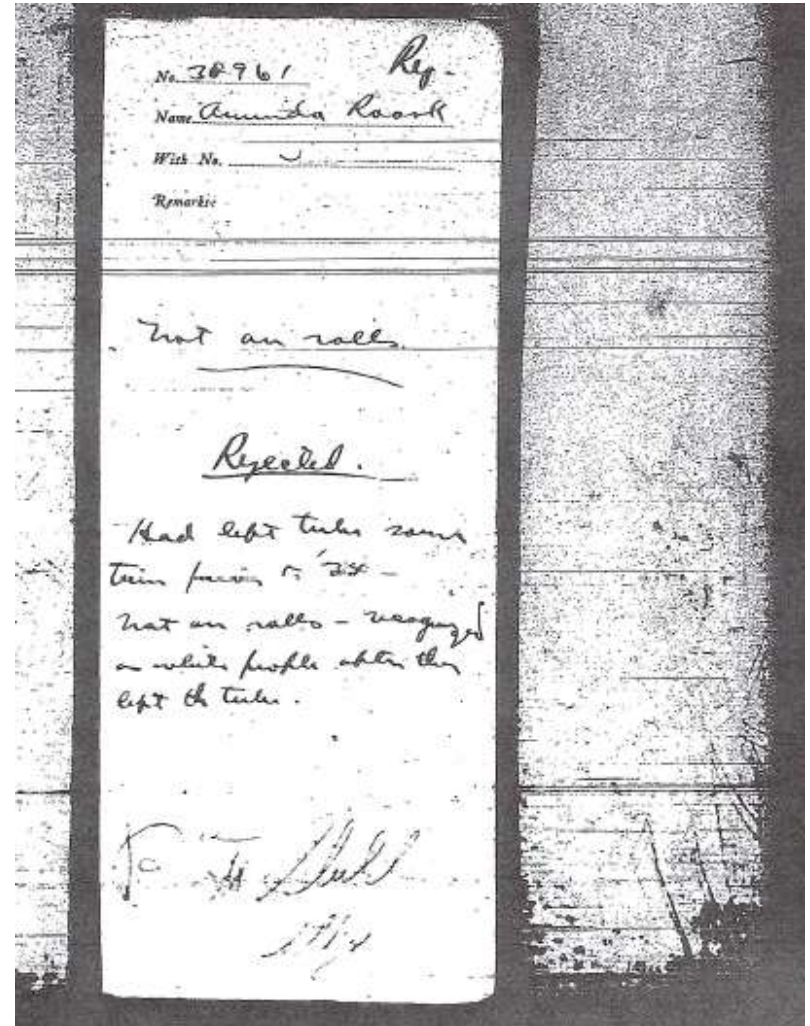 No. 38961 Rej.
Name Amanda Roark
With No.
Remarks:
Not on rolls.
Rejected.
Had left tribe some
time previous to '35 -
Not on rolls - recognized
as white people after they
left the tribe.